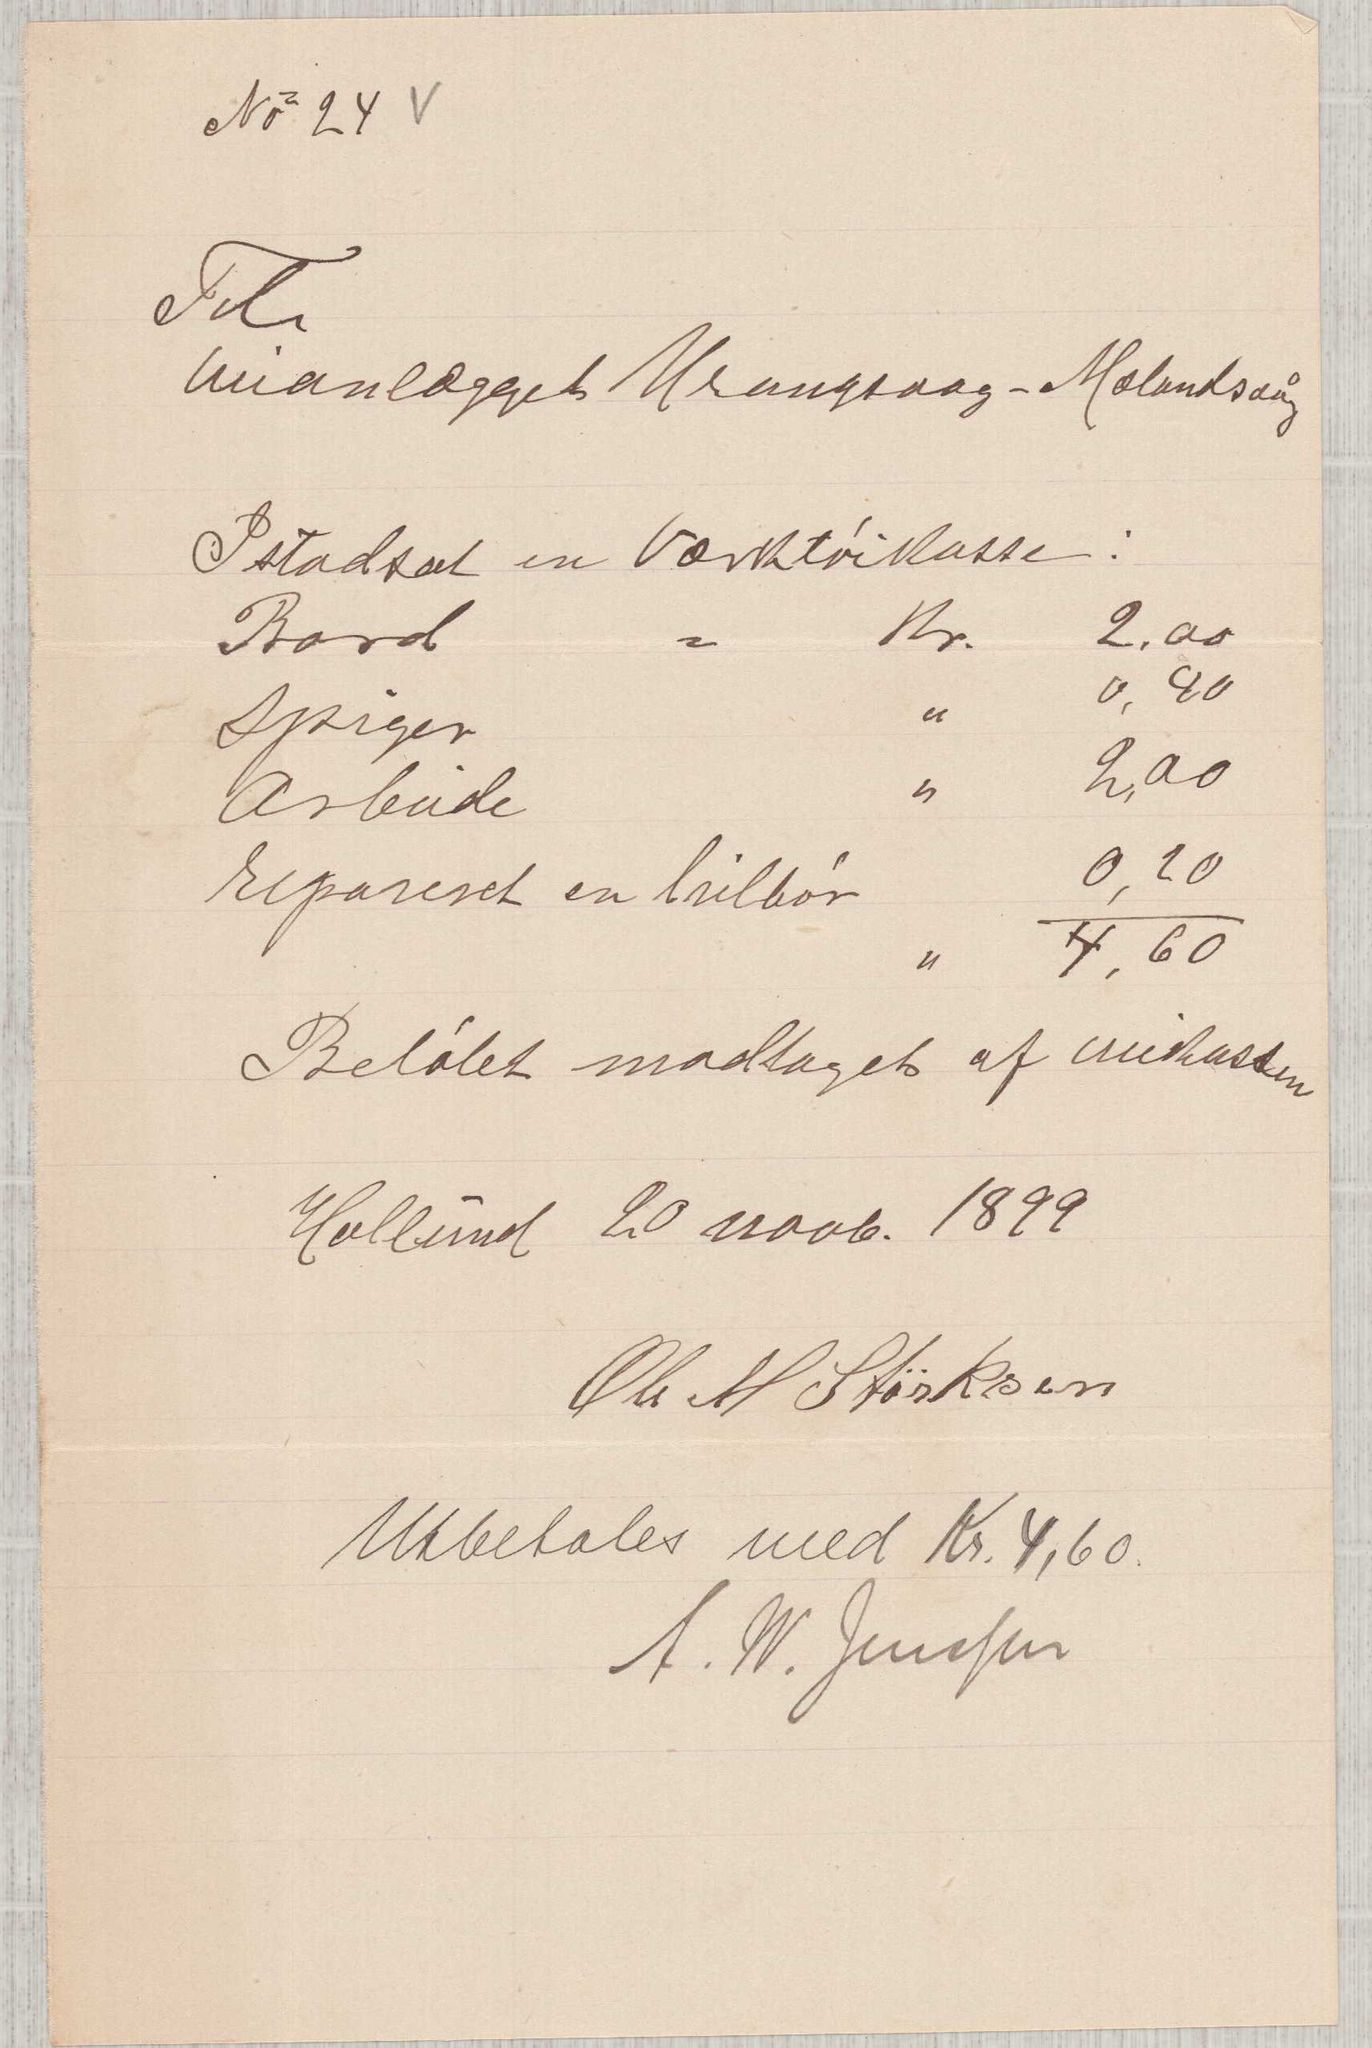 No 24 V
Til
veianlægget Urangsvaag - Mælandsvåg
Istadsat en Værktóikasse :
Bord " Kr. 2,00
Spiger " 0,40
Arbeide " 2,00
repareret en trilbór 0,20
" 4,60
Belóbet modtaget af veikassen
Hollund 20 novb. 1899
Ole M Störksen
Utbetales med Kr. 4,60.
A. W. Jensen